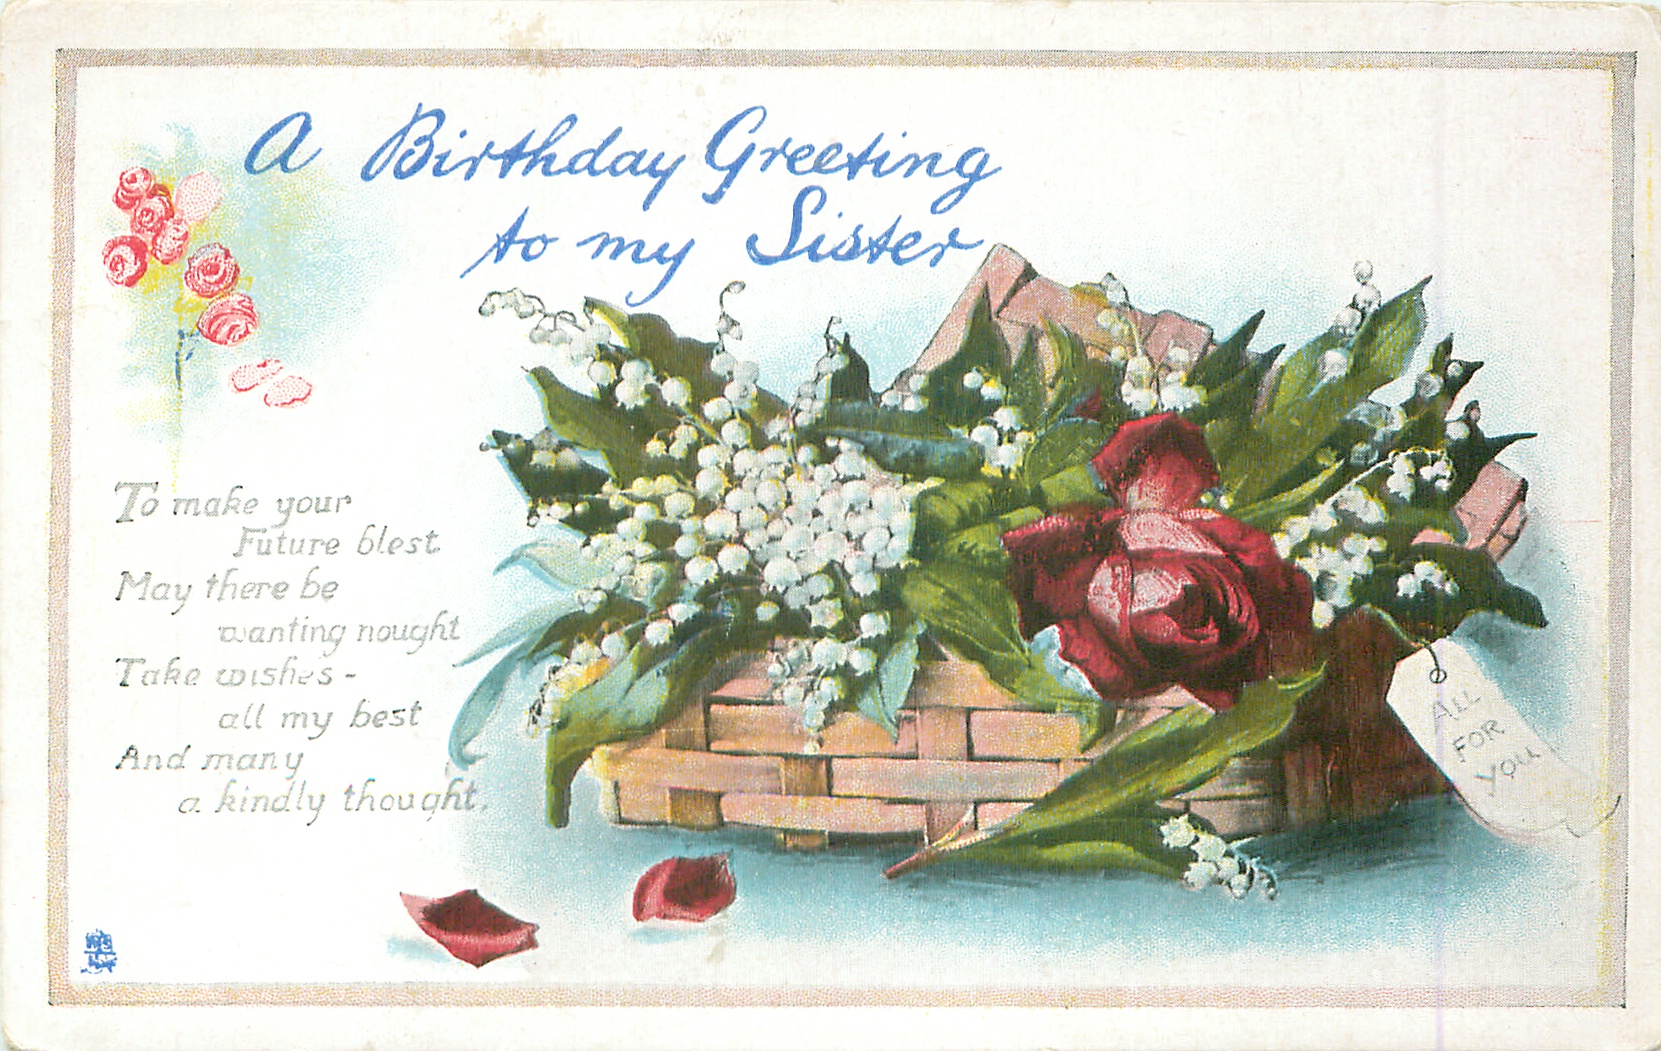 A Birthday Greeting
to my Sister
To make your
Future blest
May there be
wanting nought
Take wishes -
all my best
And many
a kindly thought.
ALL
FOR
YOU